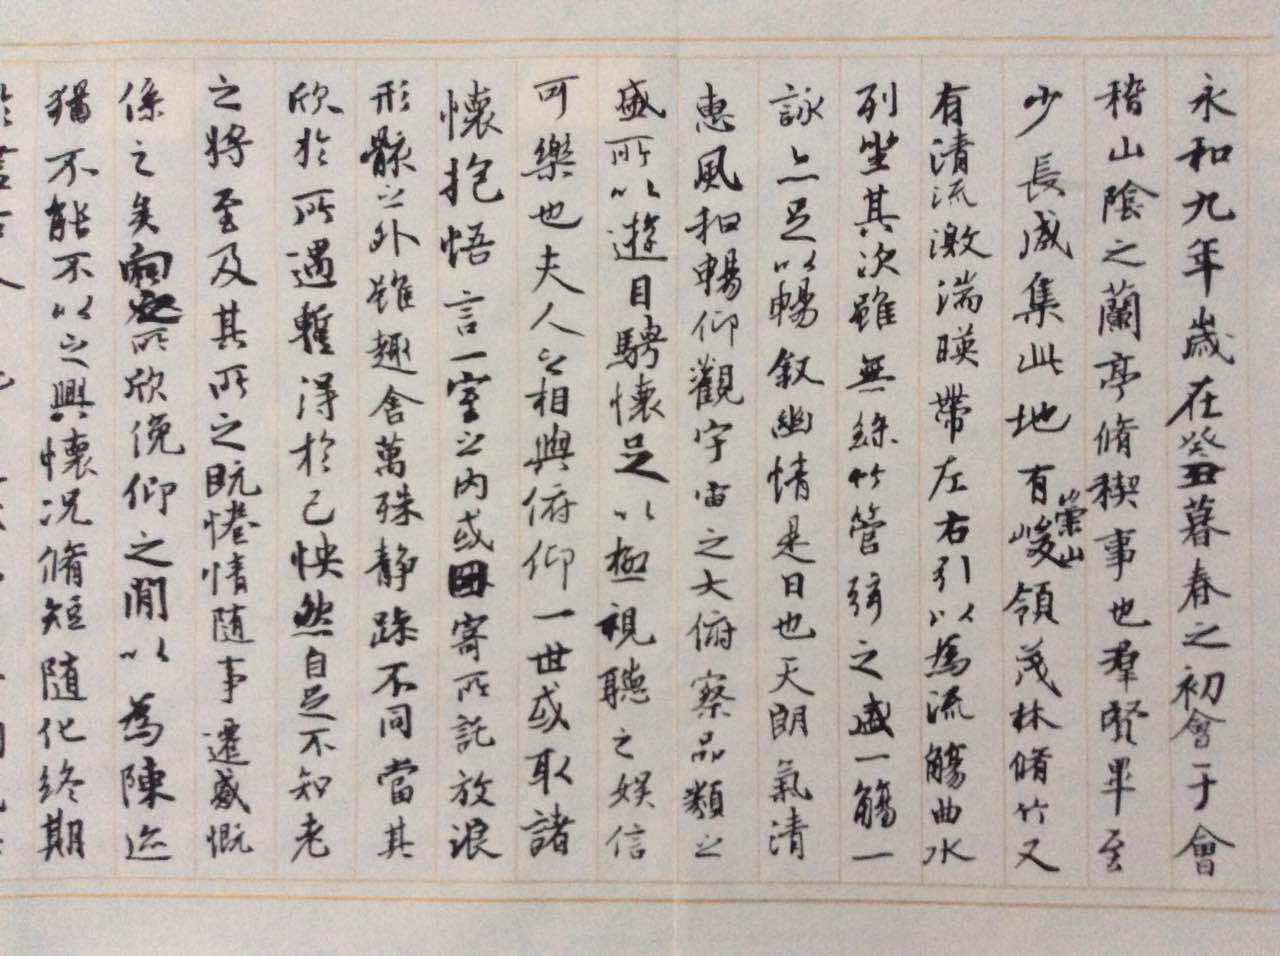 永和九年歲在癸丑暮春之初會于會
稽山陰之蘭亭脩稧事也羣賢畢至
少長咸集此地有崇山峻領茂林脩竹又
有清流激湍暎帶左右引以為流觴曲水
列坐其次雖無絲竹管弦之盛一觴一
詠亦足以暢敘幽情是日也天朗氣清
惠風和暢仰觀宇宙之大俯察品類之
盛所以遊目騁懷足以極視聽之娛信
可樂也夫人之相與俯仰一世或取諸
懷抱悟言一室之內或因寄所託放浪
形骸之外雖趣舍萬殊靜躁不同當其
欣於所遇暫得於己怏然自足不知老
之將至及其所之既惓情隨事遷感慨
係之矣向之所欣俛仰之閒以為陳迹
猶不能不以之興懷況脩短隨化終期